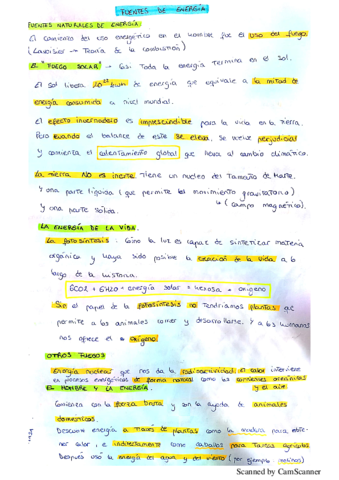 FUENTES DE ENERGÍA
FUENTES NATURALES DE ENERGÍA
El comienzo del uso energético en el hombre fue el uso del fuego.
(Lavoisier → Teoría de la combustión)
EL "FUEGO SOLAR" → Casi Toda la energía termina en el sol.
El sol libera de energía que equivale a la mitad de
energía consumida a nivel mundial.
El efecto invernadero es imprescindible para la vida en la tierra.
Pero cuando el balance de este se eleva, se vuelve perjudicial
y comienza el calentamiento global que lleva al cambio climático.
La tierra No es inerte tiene un nucleo del Tamaño de Marte.
Y una parte liquida (que permite los movimiento gravitatorio)
Y una parte sólida. ↳ (campo magnético).
LA ENERGÍA DE LA VIDA.
La fotosíntesis: Cómo la luz es capaz de sintetizar materia
orgánica y haya sido posible la creación de la vida a lo
largo de la historia.
6CO2 + 6H2O + energía solar → + oxigeno
Sin el papel de la fotosíntesis no Tendríamos plantas que
permite a los animales comer y desarrollarse. Y a los humanos
nos ofrece el oxígeno.
OTROS FUEGOS
Energía nuclear que nos da la radioactividad: el calor interviene
en procesos energéticos de forma natural como las corrientes oceánicas
y el aire.
EL HOMBRE Y LA ENERGÍA.
Comienza con la fuerza bruta y con la ayuda de animales
domésticos.
Descubre energía a través de plantas como la madera para obte-
ner calor, e indirectamente como caballos para Tareas agrícolas
Después usó la energía del agua y del viento (por ejemplo: molinos)
Scanned by CamScanner